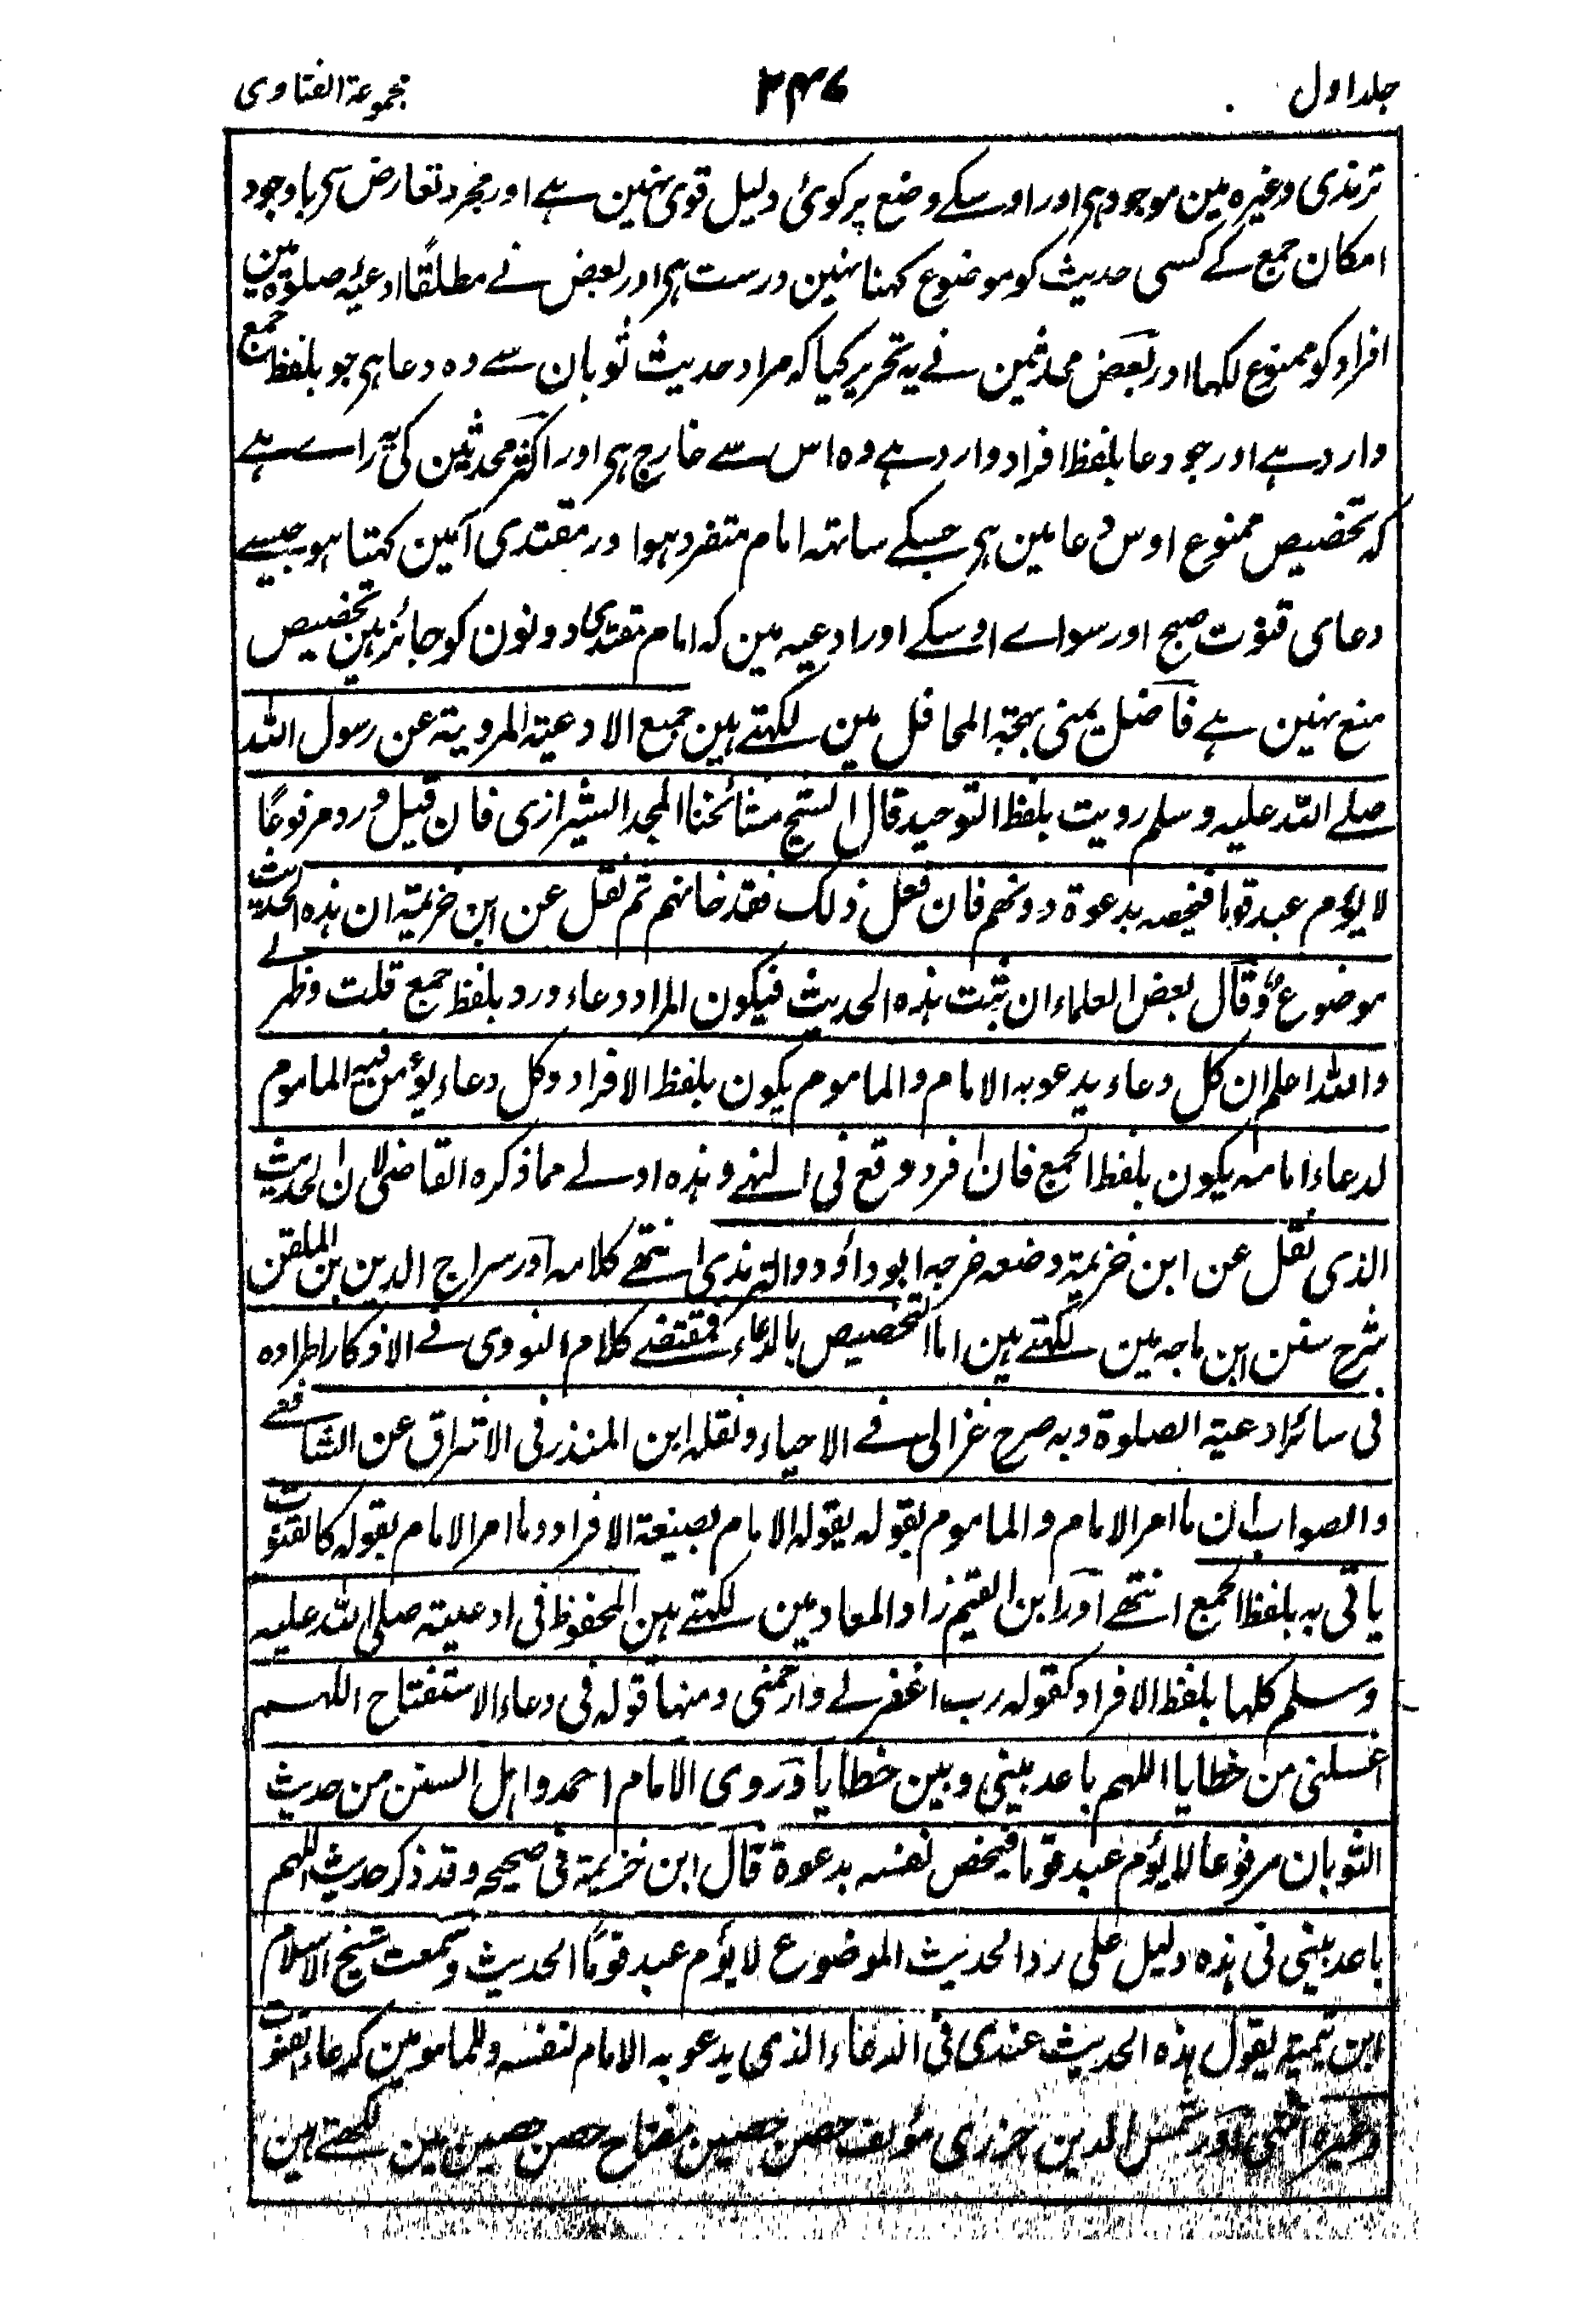 جلد اول ۳۴۷ مجموعة الفتاوی
ترمذی وغیرہ مین موجود ہی اور اوسکے وضع پر کوئی دلیل قوی نہین ہے اور مجرد تعارض سی باوجود
امکان جمع کے کسی حدیث کو موضوع کہنا نہین درست ہی اور بعض نے مطلقًا ادعیۂ صلوة مین
افراد کو ممنوع لکھا اور بعض محدثین نے یہ تحریر کیا کہ مراد حدیث ثوبان سے وہ دعا ہی جو بلفظ جمع
وارد ہے اور جو دعا بلفظ افراد وارد ہے وہ اس سے خارج ہی اور اکثر محدثین کی یہ راے ہے
کہ تخصیص ممنوع اوس دعا مین ہی جسکے ساتھ امام متفرد ہو اور مقتدی آمین کہتا ہو جیسے
دعای قنوت صبح اور سواے اوسکے اور ادعیہ مین کہ امام مقتدی دونون کو جائز ہین تخصیص
منع نہین ہے فاضل یمنی بہجة المحافل مین لکھتے ہین جمیع الادعیة المرویة عن رسول اللہ
صلے اللہ علیہ وسلم رویت بلفظ التوحید قال الشیخ مشائخنا المجد الشیرازی فان قیل ورد مرفوعًا
لا یؤم عبد قوما فیخصہ بدعوة دونهم فان فعل ذلک فقد خانهم ثم نقل عن ابن خزیمة ان ہذہ الحدیث
موضوع وقال بعض العلماء ان ثبت ہذہ الحدیث فیکون المراد دعاء ورد بلفظ جمع قلت وظہر لے
واللہ اعلم ان کل دعاء یدعو بہ الامام والماموم یکون بلفظ الافراد وکل دعاء یؤمن فیہ الماموم
لدعاء امامہ یکون بلفظ الجمع فان افرد وقع فی النہے وہذہ اولے مما ذکرہ القاضی لان الحدیث
الذی نقل عن ابن خزیمة وضعہ خرجہ ابوداؤد والترمذی انتہے کلامہ اور سراج الدین بن الملقن
شرح سنن ابن ماجہ مین لکھتے ہین اما التخصیص بالدعاء فمقتضے کلام النووی فے الاذکار اطرادہ
فی سائر ادعیة الصلوة وبہ صرح غزالی فے الاحیاء ونقلہ ابن المنذر فی الاشراق عن الشافعے
والصواب ان ما امر الامام والماموم بقولہ یقولہ الامام بصیغة الافراد وما امر الامام بقولہ کالقنوت
یاتی بہ بلفظ الجمع انتہے اور ابن القیم زاد المعاد مین لکھتے ہین المحفوظ فی ادعیتہ صلی اللہ علیہ
وسلم کلہا بلفظ الافراد کقولہ رب اغفر لے وارحمنی ومنہا قولہ فی دعاء الاستفتاح اللہم
اغسلنی من خطایا اللہم باعد بینی وبین خطایا وروی الامام احمد واہل السنن من حدیث
الثوبان مرفوعا لا یؤم عبد قوما فیخص نفسہ بدعوة قال ابن خزیمة فی صحیحہ وقد ذکر حدیث اللہم
باعد بینی فی ہذہ دلیل علی رد الحدیث الموضوع لا یؤم عبد قومًا الحدیث وسمعت شیخ الاسلام
ابن تیمیة یقول ہذہ الحدیث عندی فی الدعاء الذی یدعو بہ الامام لنفسہ وللمامومین کدعاء القنوت
وغیرہ انتہی اور شمس الدین جزری مؤلف حصن حصین مفتاح حصن حصین مین لکھتے ہین